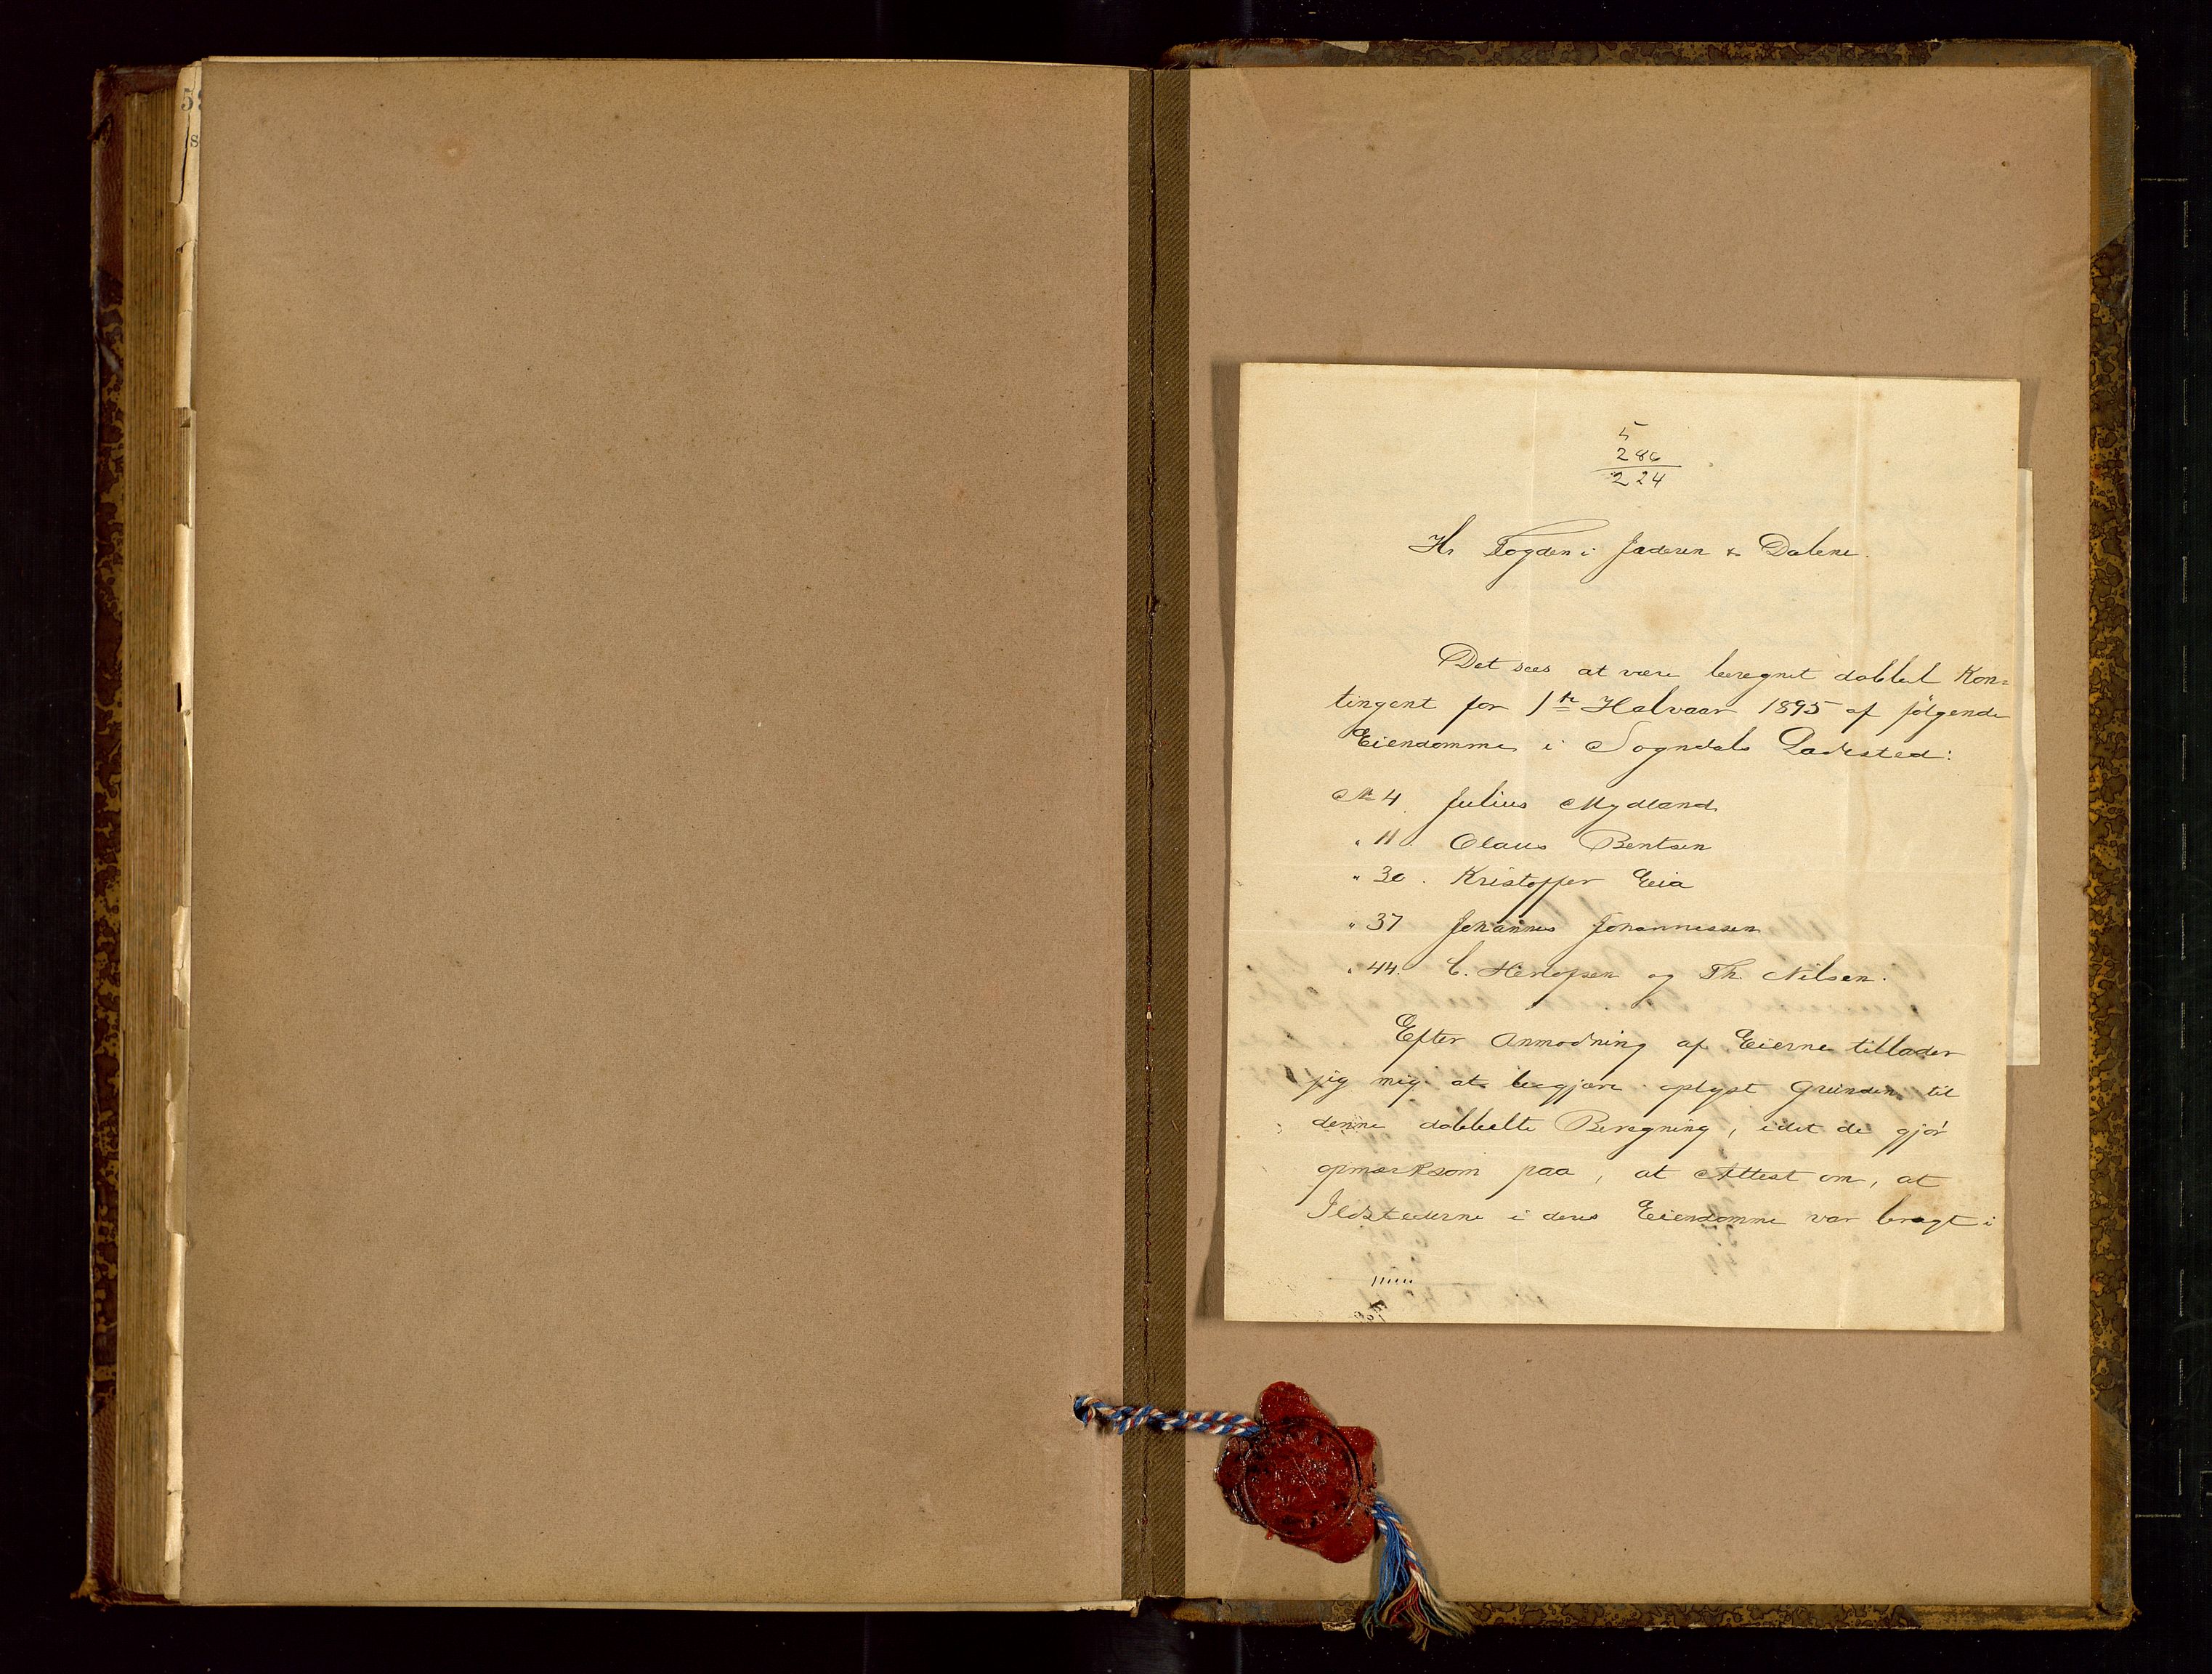 5
286
224
Hr Fogden i Jæderen & Dalene.
Det sees at være beregnet dobbel Kon=
tingent for 1ste Halvaar 1895 af følgende
Eiendomme i Sogndals Ladested:
№ 4. Julius Mydland
" 11. Olaus Bentsen
" 30. Kristoffer Eeia
" 37 Johannes Johannessen
" 44. C. Herlofsen og Th. Nilsen.
Efter Anmodning af Eierne tillader
jeg mig at begjære oplyst Grunden til
denne dobbelte Beregning, idet de gjør
opmærksom paa, at Attest om, at
Ildstederne i deres Eiendomme var bragt i